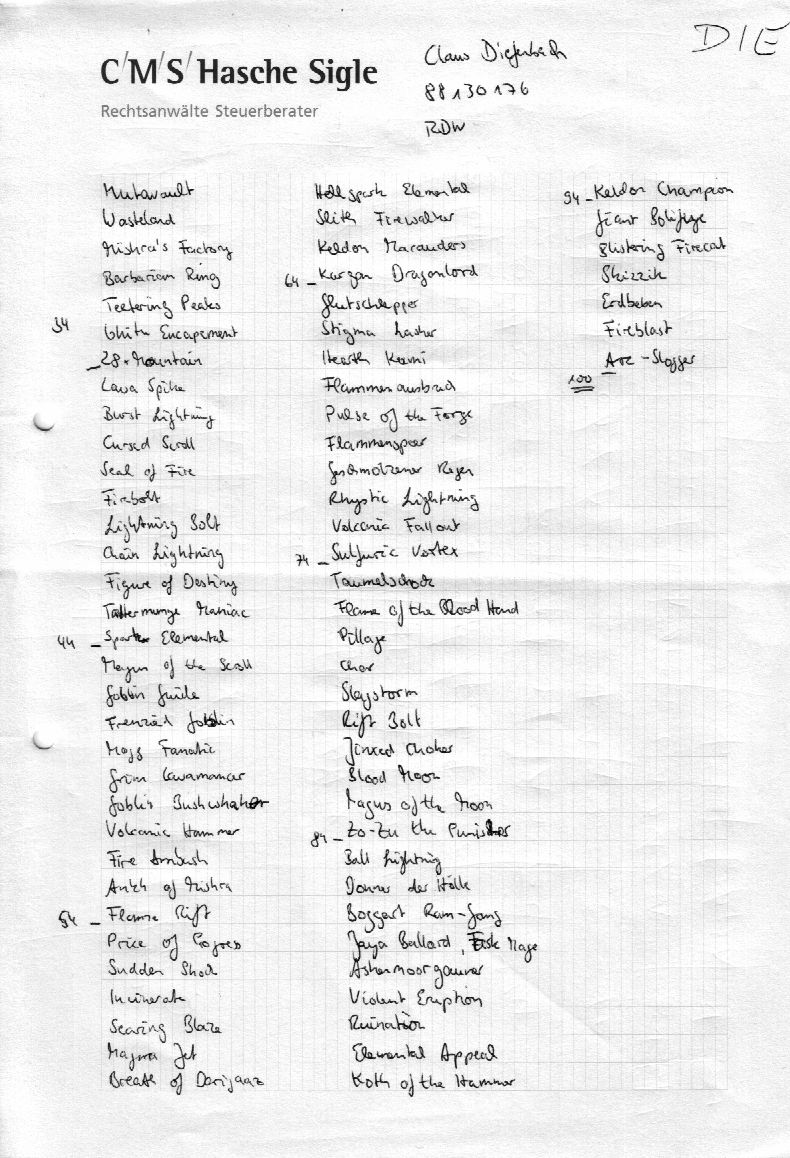 DIE
C/M/S/ Hasche Sigle
Rechtsanwälte Steuerberater
Claus Diefenbach
88130176
RDW
Mutavault
Wasteland
Mishra's Factory
Barbarian Ring
Teetering Peaks
34
Ghitu Encapement
28 x Mountain
Lava Spike
Burst Lightning
Cursed Scroll
Seal of Fire
Firebolt
Lightning Bolt
Chain Lightning
Figure of Destiny
Tattermunge Maniac
44 - Spark Elemental
Magus of the Scroll
Goblin Guide
Frenzied Goblin
Mogg Fanatic
Grim Lavamancer
Goblin Bushwhacker
Volcanic Hammer
Fire Ambush
Ankh of Mishra
54 - Flame Rift
Price of Progress
Sudden Shock
Incinerate
Searing Blaze
Magma Jet
Breath of Darigaaz
Hellspark Elemental
Slith Firewalker
Keldon Marauders
64 - Kargan Dragonlord
Glutschlepper
Stigma Lasher
Hearth Kami
Flammenausbruch
Pulse of the Forge
Flammenspeer
Geschmolzener Regen
Rhystic Lightning
Volcanic Fallout
74 - Sulfuric Vortex
Taumelschock
Flame of the Blood Hand
Pillage
Char
Slagstorm
Rift Bolt
Jinxed Choker
Blood Moon
Magus of the Moon
84 - Zo-Zu the Punisher
Ball Lightning
Donner der Hölle
Boggart Ram-Gang
Jaya Ballard, Task Mage
Ashenmoorgauner
Violent Eruption
Ruination
Elemental Appeal
Koth of the Hammer
94 - Keldon Champion
Giant Solifuge
Blistering Firecat
Skizzik
Erdbeben
Fireblast
Arc-Slogger
100